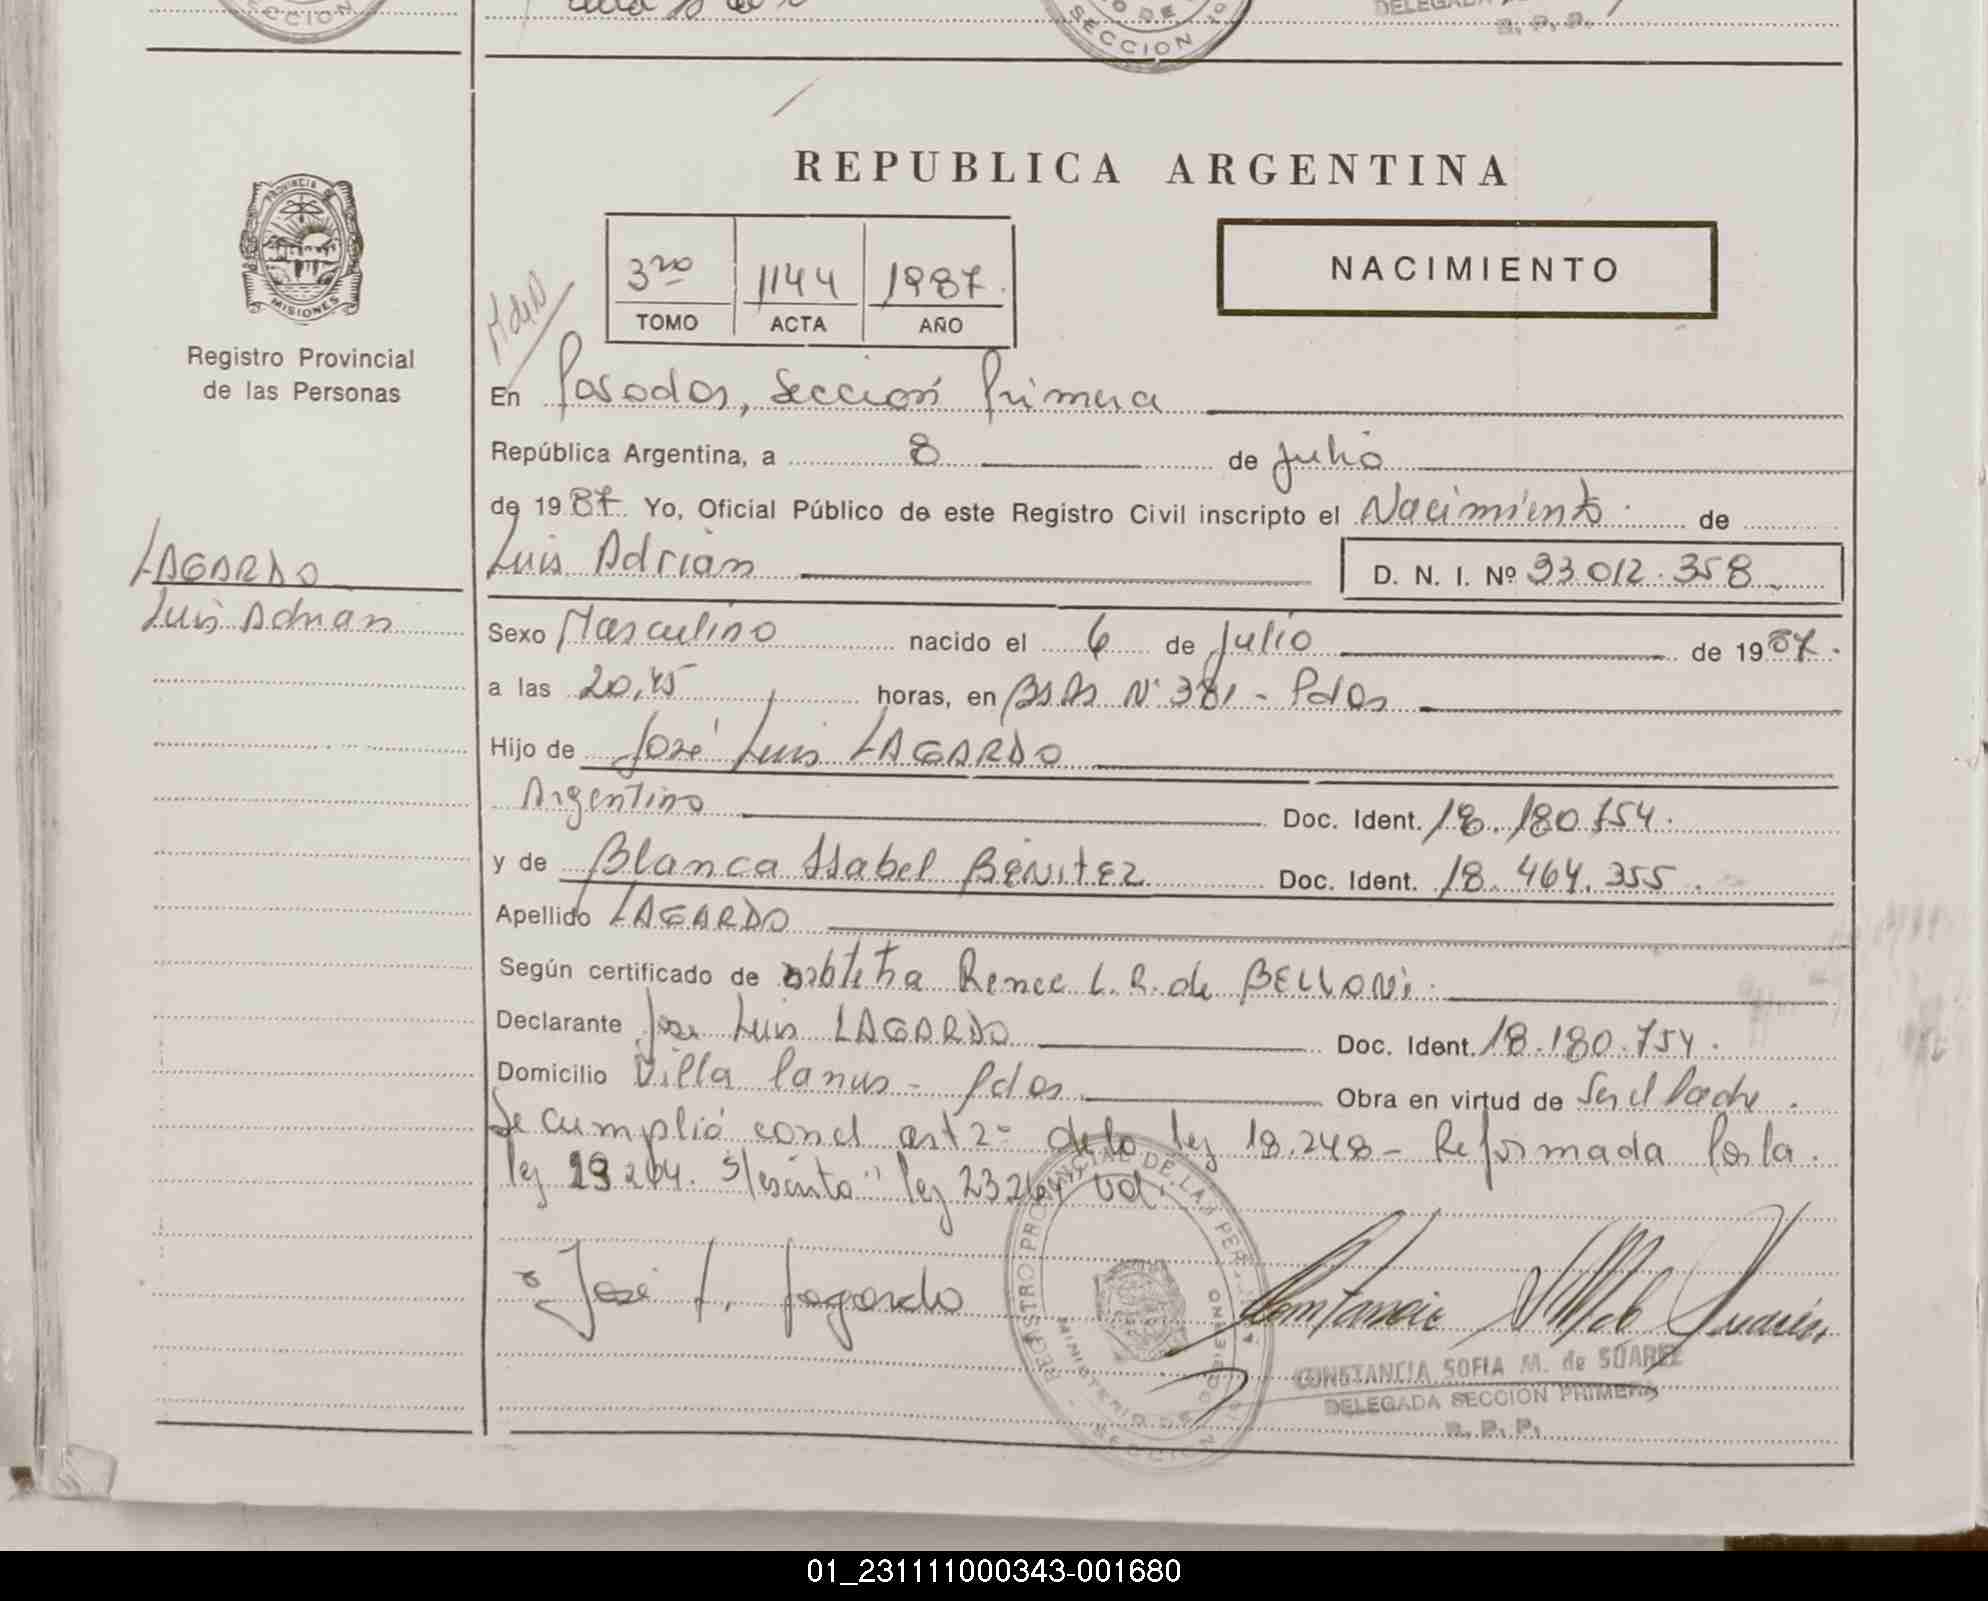 SECCION
DE
SECCION
DELEGADA
R. P. P.
REPUBLICA ARGENTINA
PROVINCIA DE
MISIONES
Registro Provincial
de las Personas
3ro 1144 1987.
TOMO ACTA AÑO
NACIMIENTO
En Posadas, Sección Primera
República Argentina, a 8 de Julio
de 1987. Yo, Oficial Público de este Registro Civil inscripto el Nacimiento de
Luis Adrián D. N. I. Nº 33 012.358
LAGARDO
Luis Adrián
Sexo Masculino nacido el 6 de Julio de 1987.
a las 20,45 horas, en BsAs Nº 381 - Pdas
Hijo de José Luis LAGARDO
Argentino Doc. Ident. 18.180.754.
y de Blanca Isabel BENITEZ Doc. Ident. 18.464.355.
Apellido LAGARDO
Según certificado de obstetra Renee L. R. de BELLONi.
Declarante José Luis LAGARDO Doc. Ident. 18.180.754.
Domicilio Villa Lanus - Pdas Obra en virtud de Ser el Padre.
Se cumplió con el art 2º de la ley 18.248 - Reformada Por la
ley 23264. S/escrito "ley 23.264" vd.
José L. Lagardo
REGISTRO PROVINCIAL DE LAS PERSONAS
MINISTERIO DE GOBIERNO
SECCION
CONSTANCIA SOFIA M. de SUAREZ
DELEGADA SECCION PRIMERA
R. P. P.
01_231111000343-001680